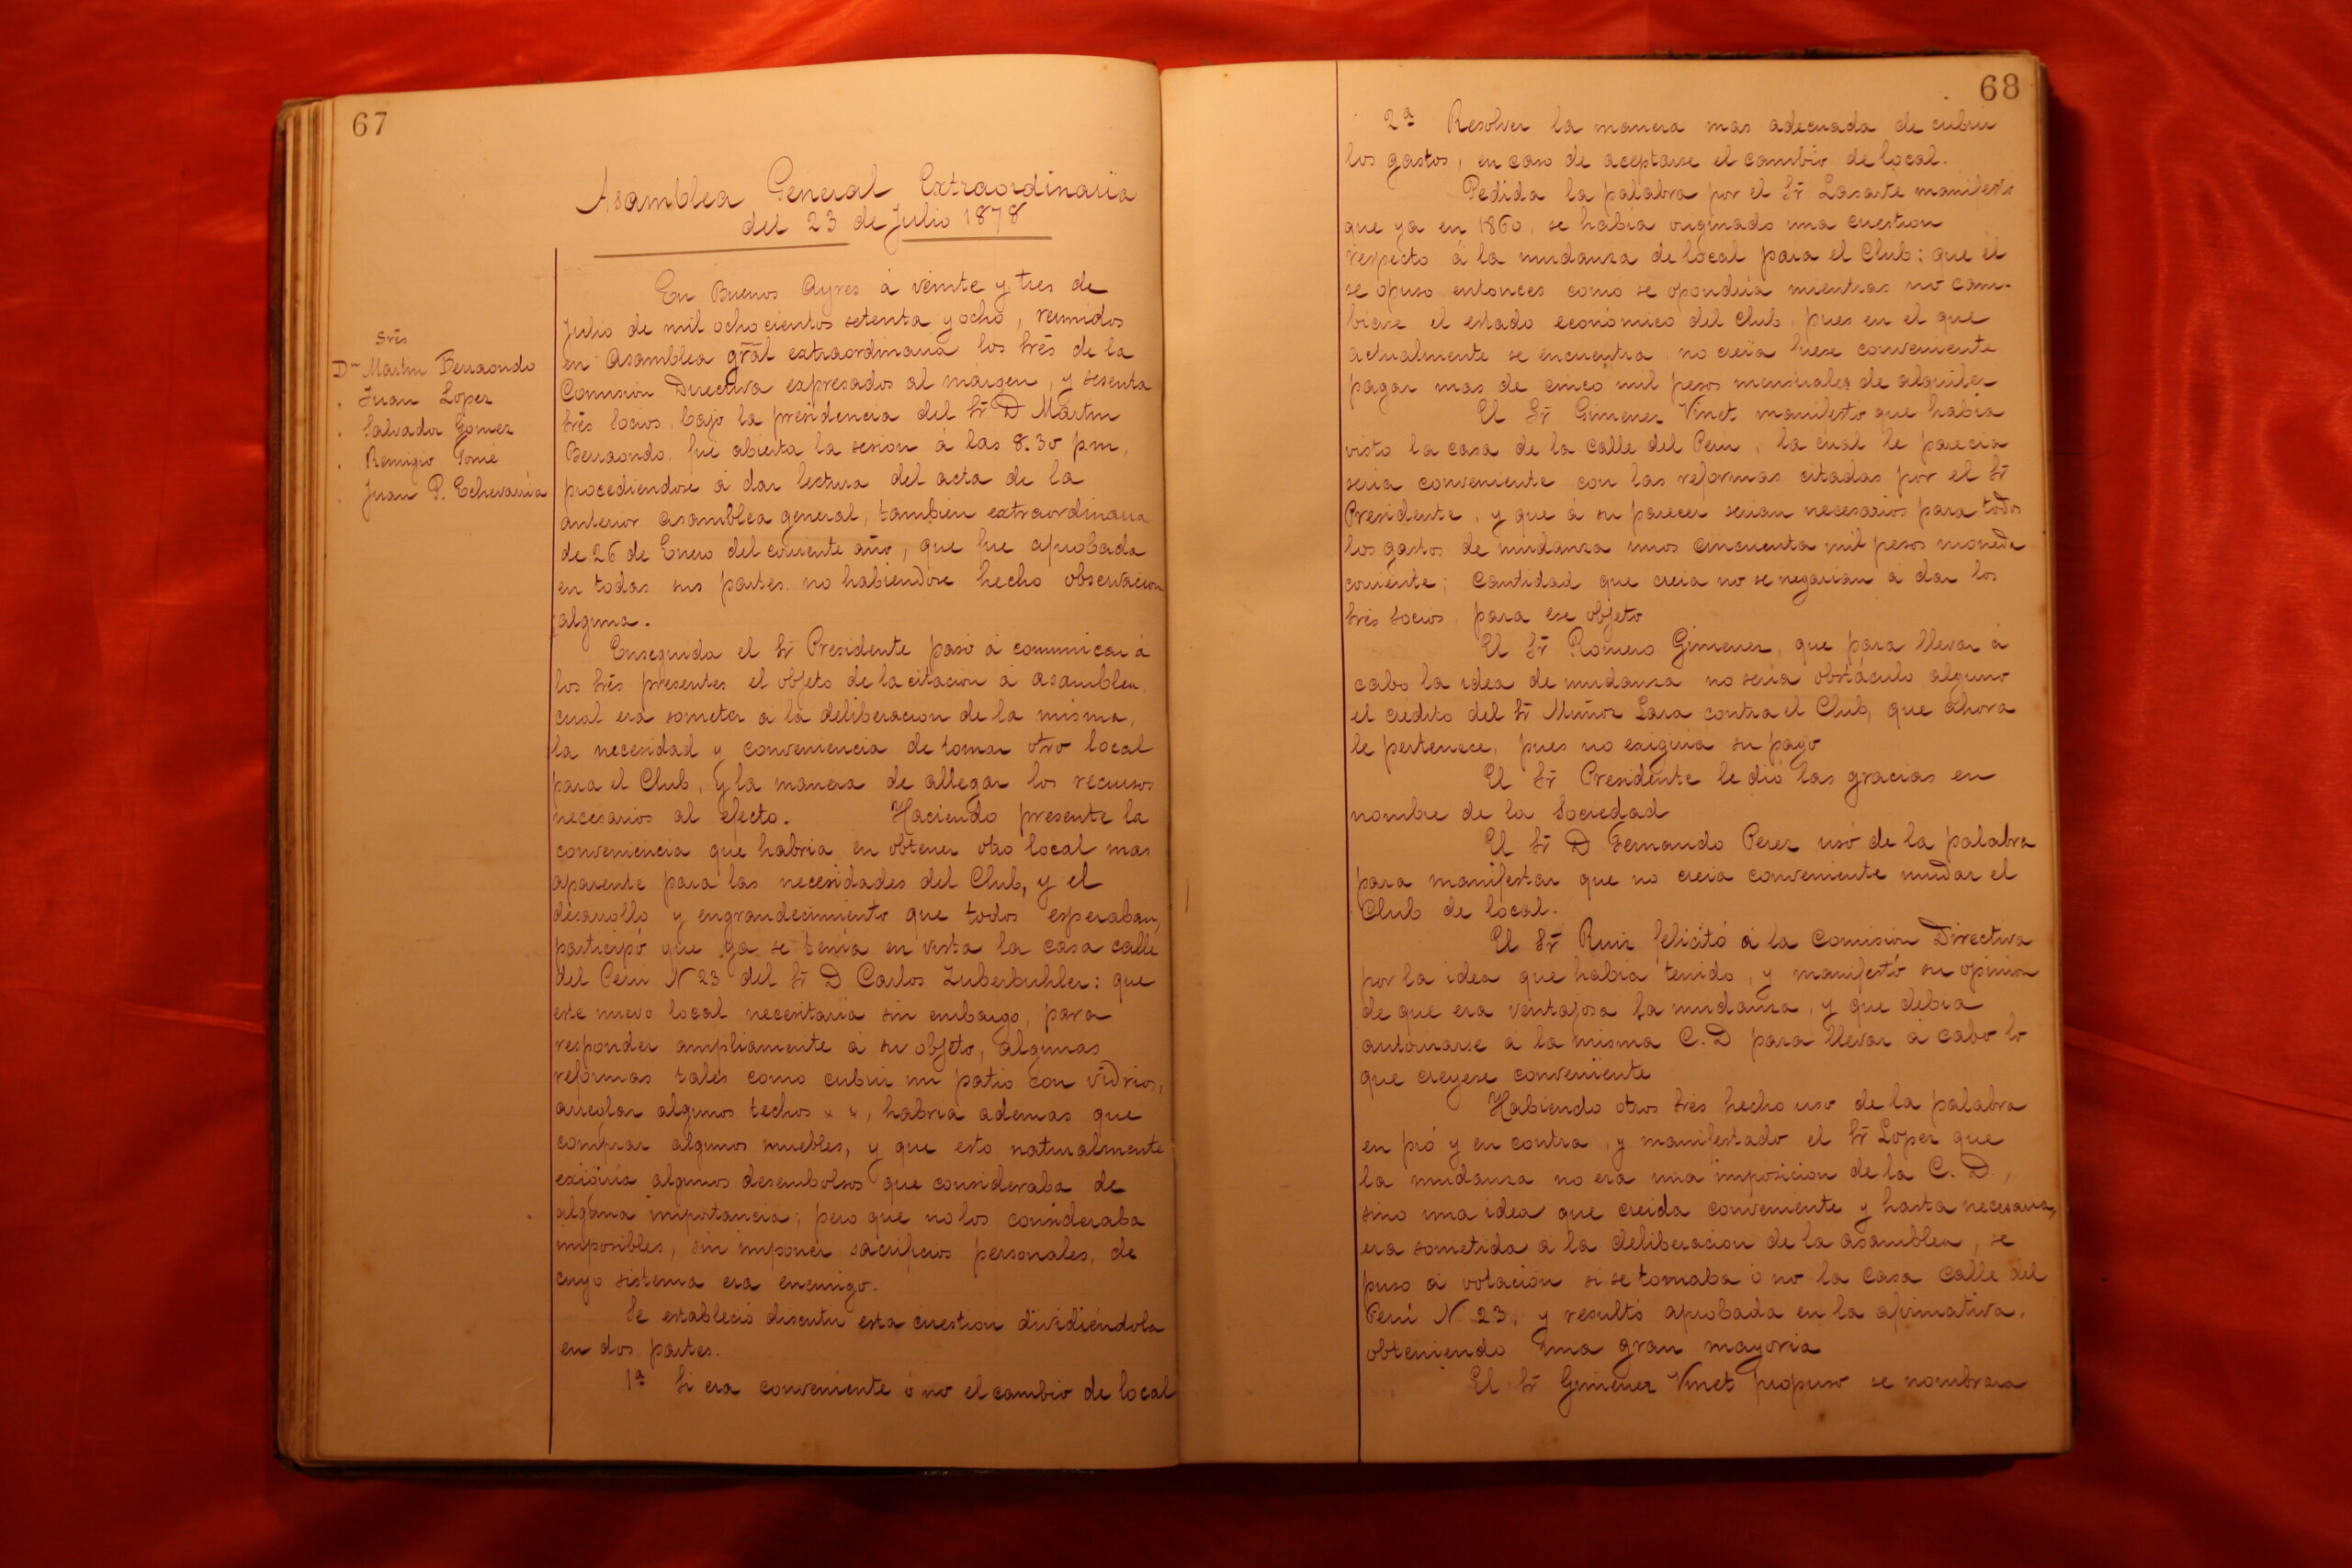 67
Asamblea General Extraordinaria
del 23 de Julio 1878
Srēs
Dn Martin Berraondo
" Juan Lopez
" Salvador Gomez
" Remigio Tomé
" Juan P. Echevarria
En Buenos Ayres á veinte y tres de
Julio de mil ochocientos setenta y ocho, reunidos
en asamblea grāl extraordinaria los Srēs de la
Comision Directiva expresados al márgen, y sesenta
Srēs Socios, bajo la presidencia del Sr̄ D Martin
Berraondo, fué abierta la sesion á las 8.30 pm,
procediendose á dar lectura del acta de la
anterior asamblea general, tambien extraordinaria
de 26 de Enero del corriente año, que fue aprobada
en todas sus partes. no habiendose hecho observacion
alguna.
Enseguida el Sr̄ Presidente pasó á comunicar á
los Srēs presentes el objeto de la citacion á asamblea,
cual era someter a la deliberacion de la misma,
la necesidad y conveniencia de tomar otro local
para el Club, y la manera de allegar los recursos
necesarios al efecto. Haciendo presente la
conveniencia que habria en obtener otro local mas
aparente para las necesidades del Club, y el
desarrollo y engrandecimiento que todos esperaban,
participó que ya se tenía en vista la casa calle
del Peru N 23 del Sr̄ D Carlos Zuberbuhler: que
este nuevo local necesitaria sin embargo, para
responder ampliamente á su objeto, algunas
reformas tales como cubrir un patio con vidrios,
arreglar algunos techos &, habria ademas que
comprar algunos muebles, y que esto naturalmente
exigiria algunos desembolsos que consideraba de
alguna importancia; pero que no los consideraba
imposibles, sin imponer sacrificios personales, de
cuyo sistema era enemigo.
Se estableció discutir esta cuestion dividiéndola
en dos partes.
1ª Si era conveniente ó no el cambio de local
68
2ª Resolver la manera mas adecuada de cubrir
los gastos, en caso de aceptarse el cambio de local.
Pedida la palabra por el Sr̄ Lasarte manifestó
que ya en 1860. se habia originado una cuestion
respecto á la mudanza de local para el Club: que él
se opuso entonces como se opondría mientras no cam-
biase el estado económico del Club, pues en el que
actualmente se encuentra no creia fuese conveniente
pagar mas de cinco mil pesos mensuales de alquiler
El Sr̄ Gimenez Vinet manifestó que habia
visto la casa de la calle del Perú, la cual le parecia
seria conveniente con las reformas citadas por el Sr̄
Presidente, y que á su parecer serian necesarios para todos
los gastos de mudanza unos cincuenta mil pesos moneda
corriente; cantidad que creia no se negarian á dar los
Srēs Socios, para ese objeto
El Sr̄ Romero Gimenez, que para llevar á
cabo la idea de mudanza no seria obstáculo alguno
el crédito del Sr̄ Muñoz Lara contra el Club, que ahora
le pertenece, pues no exigiria su pago
El Sr̄ Presidente le dió las gracias en
nombre de la Sociedad
El Sr̄ D Fernando Perez usó de la palabra
para manifestar que no creia conveniente mudar el
Club de local.
El Sr̄ Ruiz felicitó á la Comision Directiva
por la idea que habia tenido, y manifestó su opinion
de que era ventajosa la mudanza, y que debia
autorizarse a la misma C.D para llevar á cabo lo
que creyese conveniente
Habiendo otros Srēs hecho uso de la palabra
en pró y en contra, y manifestado el Sr̄ Lopez que
la mudanza no era una imposicion de la C. D.,
sino una idea que creida conveniente y hasta necesaria,
era sometida á la deliberacion de la asamblea, se
puso á votacion si se tomaba ó no la Casa Calle del
Perú N 23, y resultó aprobada en la afirmativa,
obteniendo una gran mayoria
El Sr̄ Gimenez Vinet propuso se nombrara